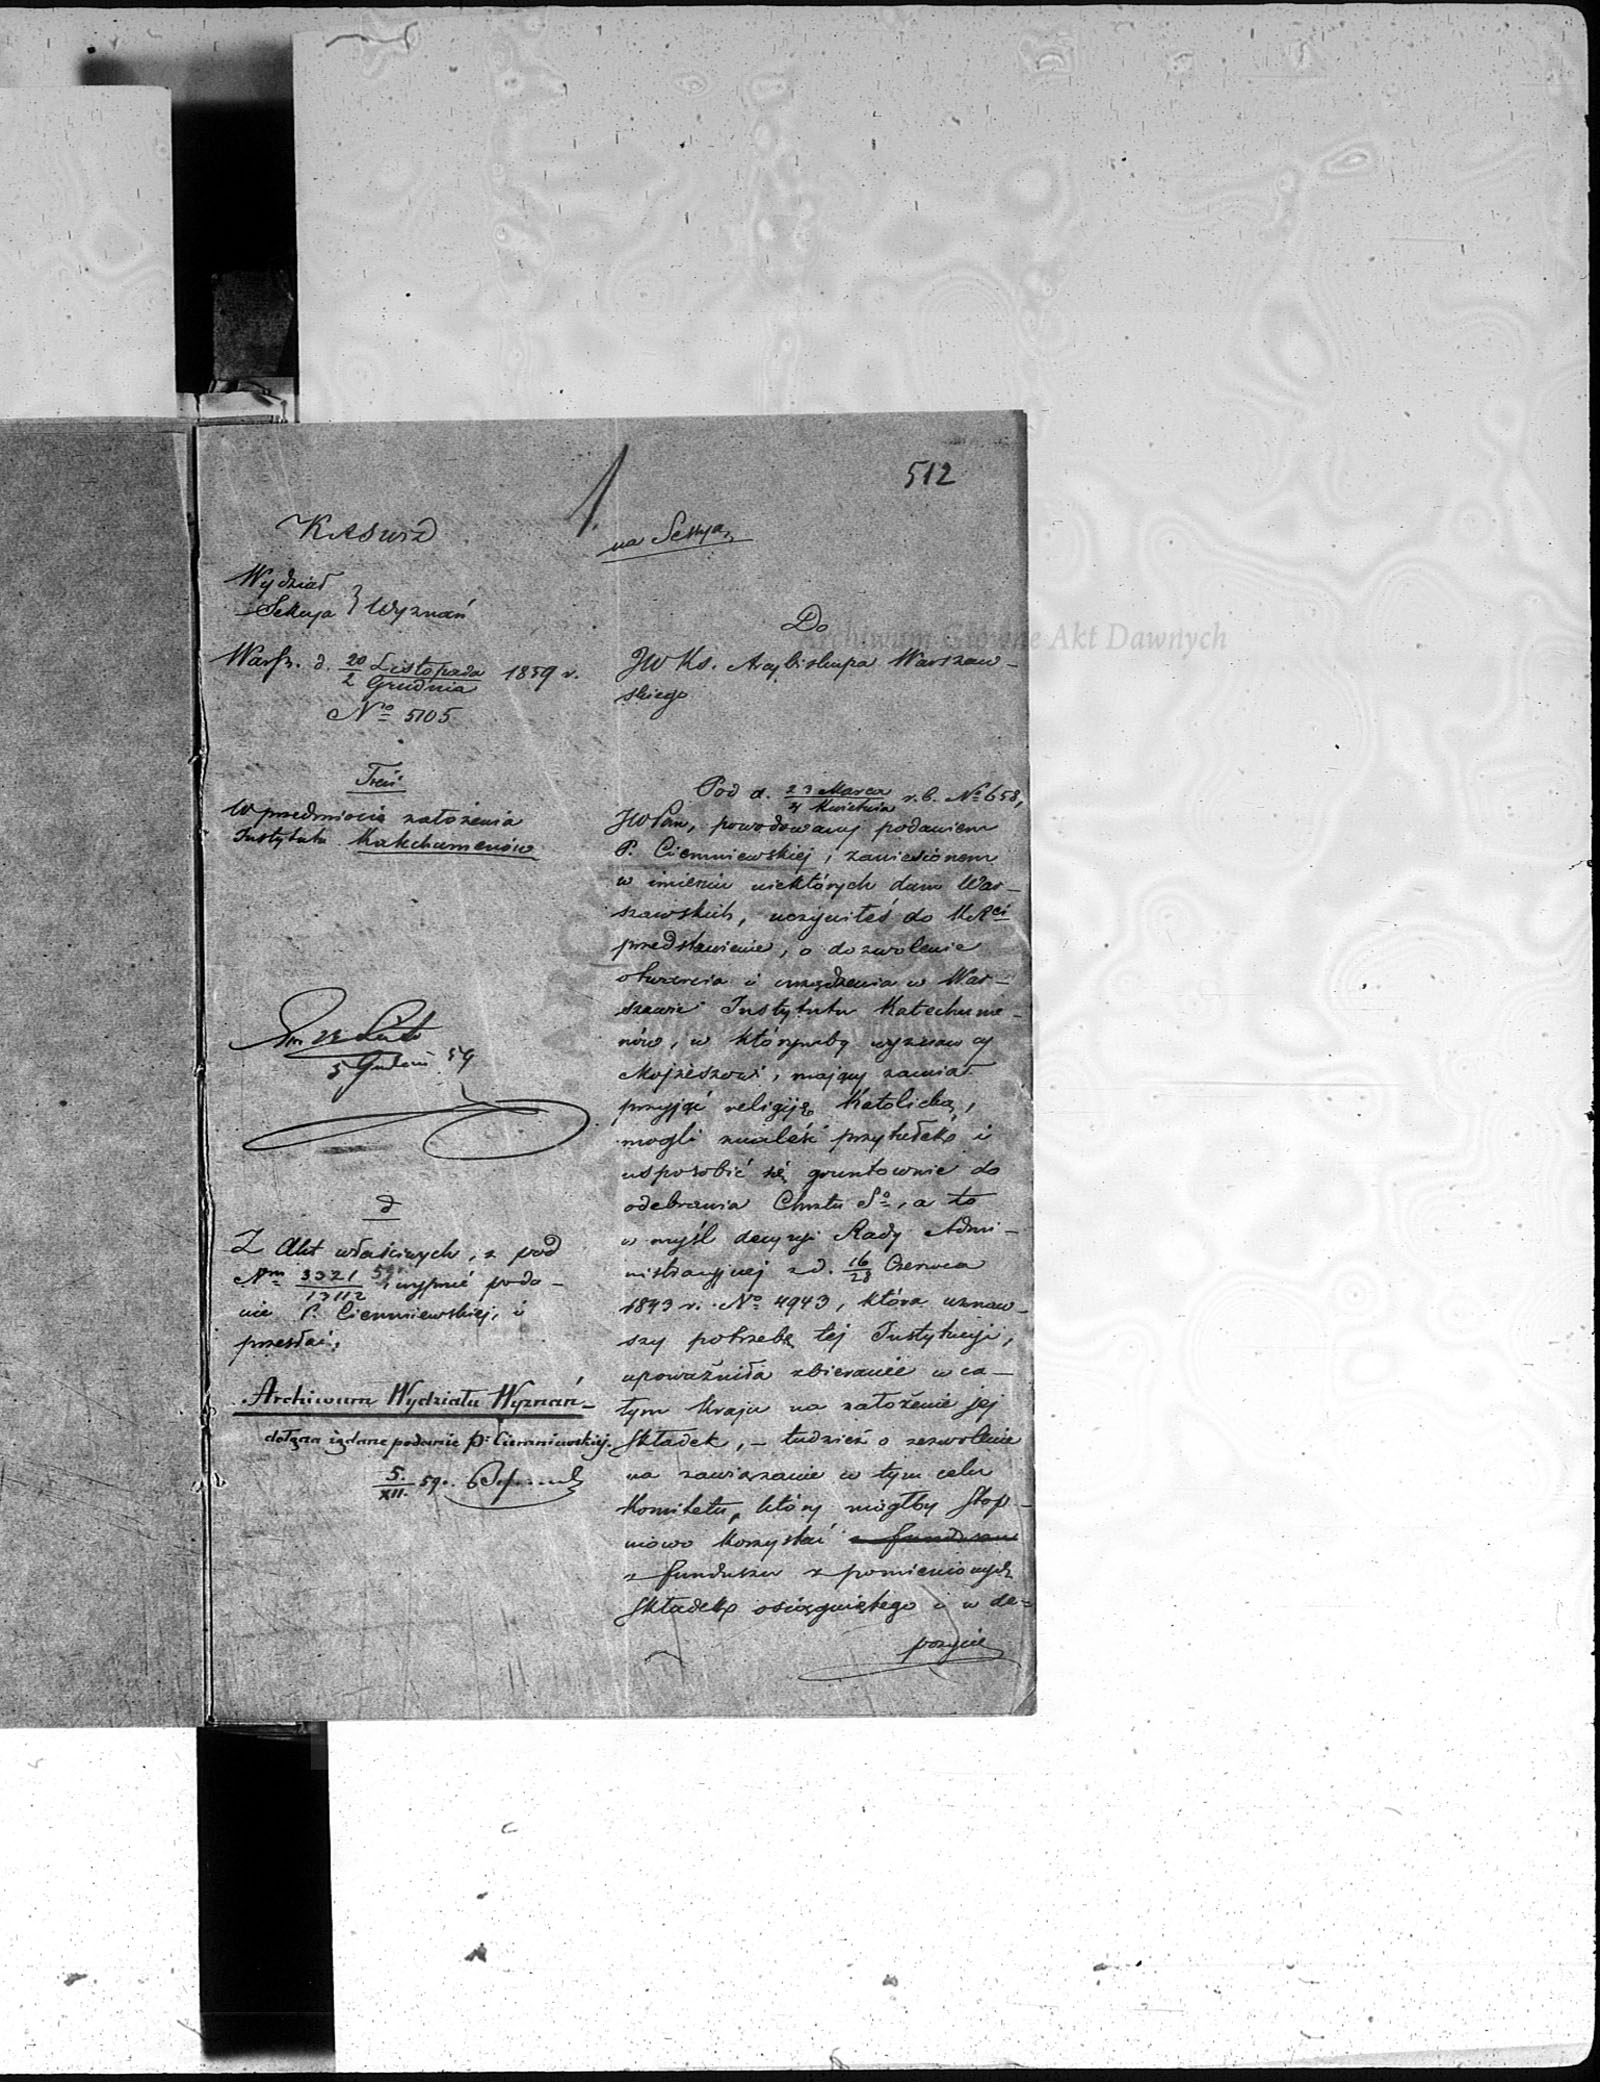 512
1.
na Sessyą
KRSWiD
Wydział
Sekcya } Wyznań
Warsz. d. 20 Listopada / 2 Grudnia 1859 r.
No 5105
Treść
W przedmiocie założenia
Instytutu Katechumenów
5 Grudnia 59
d
Z Akt właściwych, z pod
Nrm 3321/13112 59 wyjąć poda-
nie P. Ciemniewskiej, i
przesłać,
Archiwum Wydziału Wyznań
dołącza żądane podanie P. Ciemniewskiej.
5/XII. 59.
Do
JW Ks. Arcybiskupa Warszaw-
skiego
Pod d. 23 Marca / 4 Kwietnia r.b. No 658,
JWPan, powodowany podaniem
P. Ciemniewskiej, zaniesionem
w imieniu niektórych dam War-
szawskich, uczyniłeś do KRci
przedstawienie, o dozwolenie
otwarcia i urządzenia w War-
szawie Instytutu Katechume-
nów, w którymby wyznawcy
Mojżeszowi, mający zamiar
przyjąć religiję Katolicką,
mogli znaleść przytułek i
usposobić się gruntownie do
odebrania Chrztu So, a to
w myśl decyzyi Rady Admi-
nistracyjnej z d. 16/28 Czerwca
1843 r. No 4943, która uznaw-
szy potrzebę tej Instytucyi,
upoważniła zbieranie w ca-
łym Kraju na założenie jej
składek, – tudzież o zezwolenie
na zawiązanie w tym celu
Komitetu, który mógłby stop-
niowo korzystać z funduszu
z funduszu z pomienionych
składek osiągniętego i w de-
pozycie
Archiwum Główne Akt Dawnych